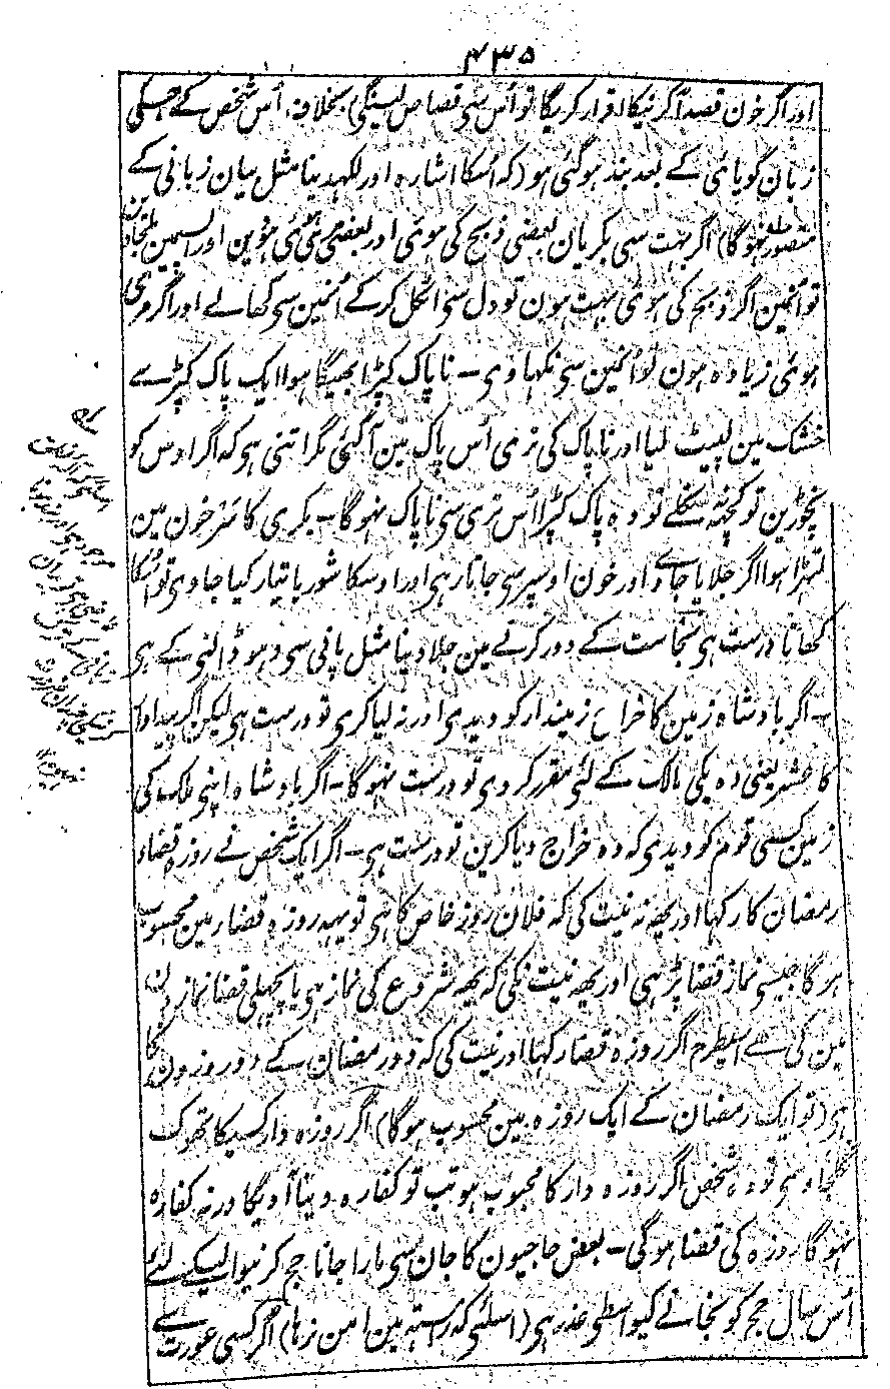 ۴۳۵
اور اگر خون قصداً کرنیکا اقرار کریگا تو اُس سی قصاص لینگی) بخلاف اُس شخص کے جسکی
زبان گویائی کے بعد بند ہو گئی ہو (کہ اُسکا اشارہ اور لکھدینا مثل بیان زبانی کے
متصور نہو گا) اگر بہت سی بکریان بعضی ذبح کی ہوئی اور بعضی مری ہوئی ہووین اور السمین ملجاوین
تو اُنمین اگر ذبح کی ہوئی بہت ہون تو دل سی اٹکل کر کے اُنمین سی کھالے اور اگر مری
ہوئی زیادہ ہون تو اُنمین سی نکہاوی – ناپاک کپڑا بھیگا ہوا ایک پاک کپڑے
خشک مین لپیٹ لیا اور ناپاک کی تری اُس پاک مین آگئی مگر اتنی ہی کہ اگر اوس کو
نچوڑین تو کچھ نہ نکلے تو وہ پاک کپڑا اُس تری سی ناپاک نہو گا – بکری کا سر خون مین
لتہڑا ہوا اگر جلایا جاے اور خون اوسپر سی جاتا رہی اور اوسکا شوربا تیار کیا جاوی تو اُسکا
کھانا درست ہی نجاست کے دور کرنے مین جلادینا مثل پانی سی دہو ڈالنی کے ہی
– اگر بادشاہ زمین کا خراج زمیندار کو دیدی اور نہ لیا کری تو درست ہی لیکن اگر پیداوار
کا عشر یعنی دہ یکی مالک کے لئی مقرر کر دی تو درست نہو گا – اگر بادشاہ اپنی ملک کی
زمین کسی قوم کو دیدی کہ وہ خراج دیا کرین تو درست ہی – اگر ایک شخص نے روزہ قضاء
رمضان کا رکہا اور یہہ نہ نیت کی کہ فلان روز خاص کا ہی تو یہہ روزہ قضا مین محسوب
ہو گا جیسی نماز قضا پڑہی اور یہہ نیت نکی کہ یہہ شروع کی نماز ہی یا پچھلی قضا نمازون
مین کی ہے اسیطرح اگر روزہ قضا رکہا اور نیت کی کہ دو رمضان کے دو روزون کا
ہی (تو ایک رمضان کے ایک روزہ مین محسوب ہو گا) اگر روزہ دار کسیکا تھوک
نگلجاوی تو وہ شخص اگر روزہ دار کا محبوب ہو تب تو کفارہ دینا آویگا ورنہ کفارہ
نہو گا روزہ کی قضا ہو گی – بعض حاجیون کا جان سی مارا جانا حج کرنیوالیکے لئے
اُس سال حج کو نجانے کیواسطی عذر ہی (اسلئی کہ راستہ مین امن نرہا) اگر کسی عورت سے